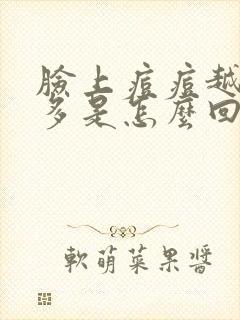 臉上痘痘越
多是怎麼回
軟萌菜果醬